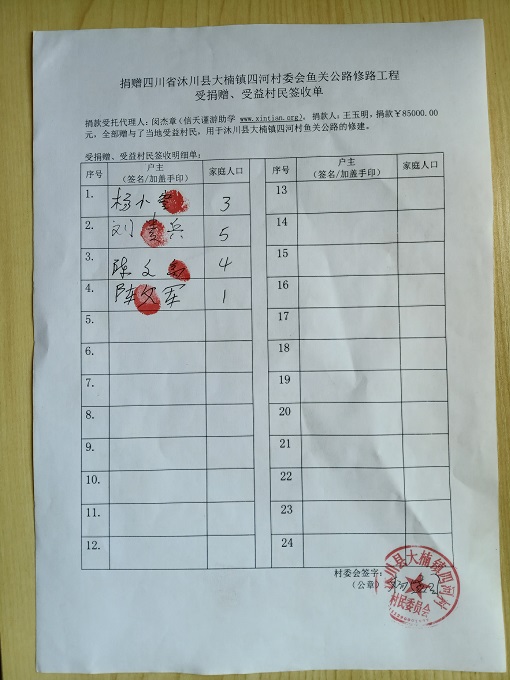 捐赠四川省沐川县大楠镇四河村委会鱼关公路修路工程
受捐赠、受益村民签收单
捐款受托代理人：闵杰章（信天谨游助学 www.xintian.org）。捐款人：王玉明，捐款￥85000.00
元，全部赠与了当地受益村民，用于沐川县大楠镇四河村鱼关公路的修建。
受捐赠、受益村民签收明细单：
序号 户主（签名/加盖手印） 家庭人口 序号 户主（签名/加盖手印） 家庭人口
1. 杨小 3 13
2. 刘 兵 5 14
3. 陈文 4 15
4. 陈文军 1 16
5. 17
6. 18
7. 19
8. 20
9. 21
10. 22
11. 23
12. 24
村委会签字：
（公章）
沐川县大楠镇四河村
村民委员会